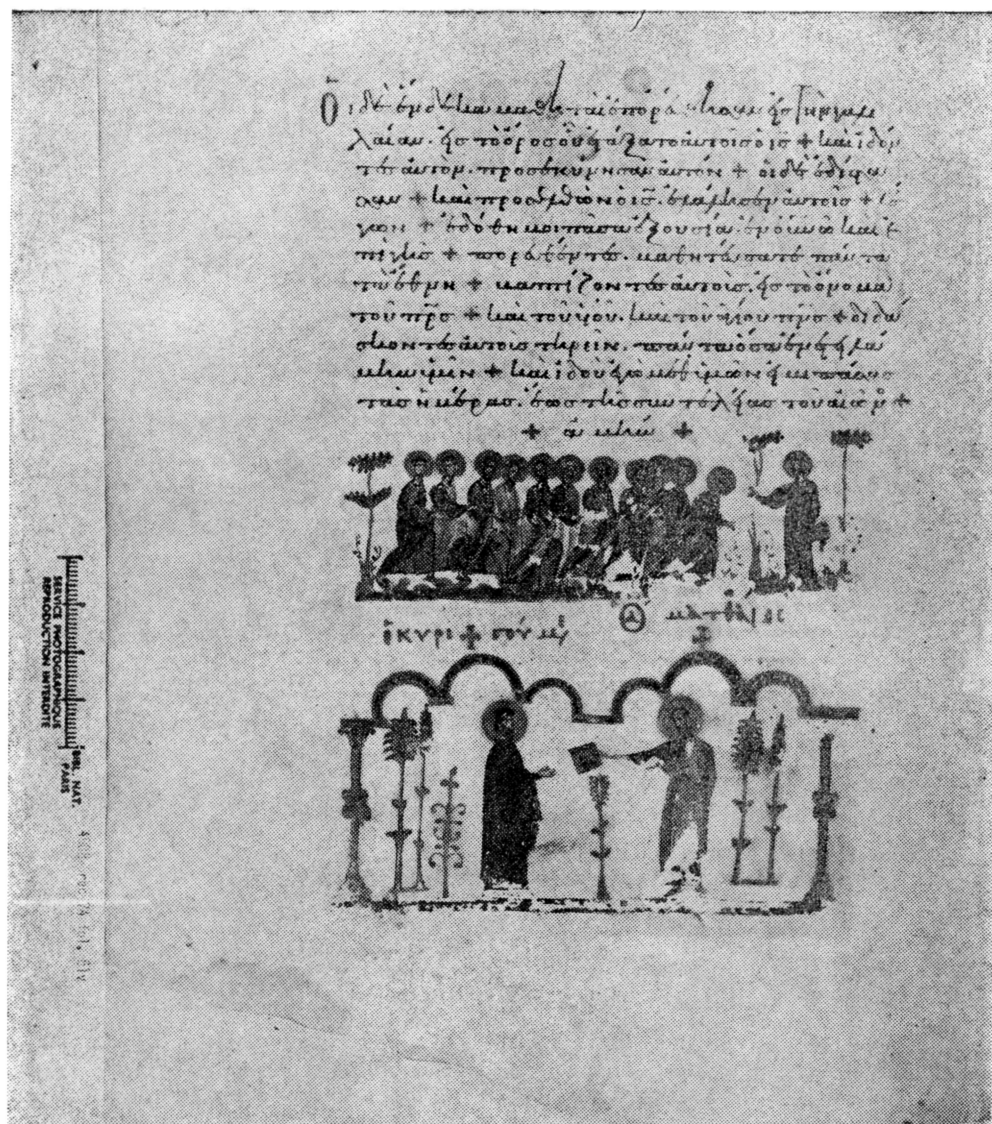 Οἱ δὲ ἕνδεκα μαθηταὶ ἐπορεύθησαν εἰς τὴν γαλι
λαίαν. εἰς τὸ ὄρος οὗ ἐτάξατο αὐτοῖς ὁ ι̅ς̅ + καὶ ἰδόν
τες αὐτὸν. προσεκύνησαν αὐτὸν + οἱ δὲ ἐδίστα
σαν + καὶ προσελθὼν ὁ ι̅ς̅. ἐλάλησεν αὐτοῖς + λέ
γων + ἐδόθη μοι πᾶσα ἐξουσία. ἐν οὐ̅νω̅ καὶ ἐ
πὶ γῆς + πορευθέντες. μαθητεύσατε πάντα
τὰ ἔθνη + βαπτίζοντες αὐτοὺς. εἰς τὸ ὄνομα
τοῦ π̅ρ̅ς̅ + καὶ τοῦ υἱοῦ. καὶ τοῦ ἁγίου π̅ν̅ς̅ + διδά
σκοντες αὐτοὺς τηρεῖν. πάντα ὅσα ἐνετειλά
μην ὑμῖν + καὶ ἰδοὺ ἐγὼ μεθ' ὑμῶν εἰμι πάσας
τὰς ἡμέρας. ἕως τῆς συντελείας τοῦ αἰῶν +
+ ἀμήν +
ματθαῖος
ὁ κύρι
BIBL. NAT. PARIS
SERVICE PHOTOGRAPHIQUE
REPRODUCTION INTERDITE